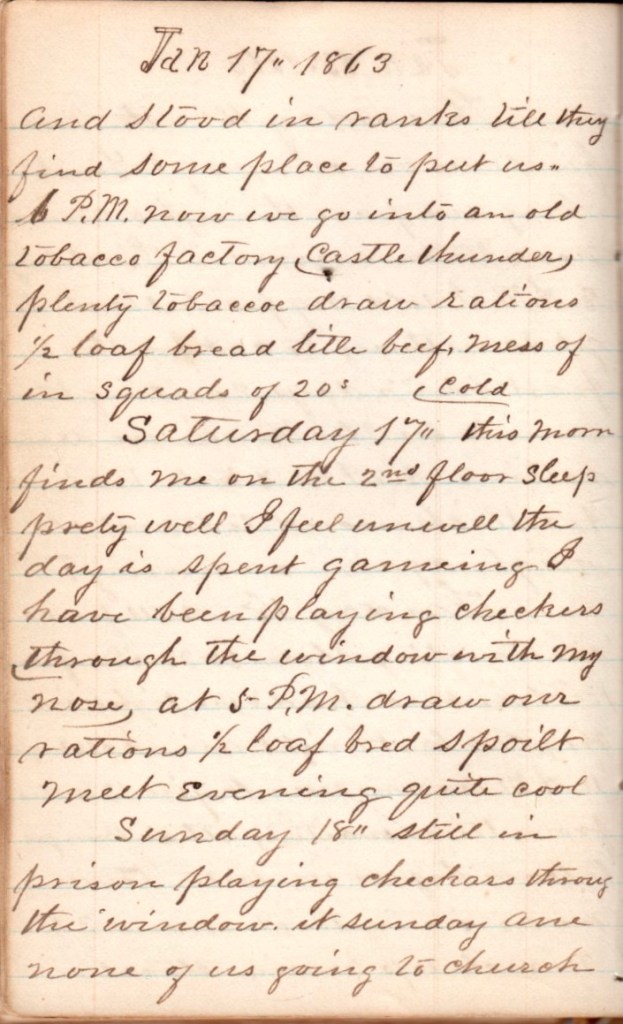 Jan 17" 1863
and stood in ranks till they
find some place to put us"
6 P.M. now we go into an old
tobacco factory (Castle thunder)
plenty tobaccoe draw rations
1/2 loaf bread litle beef, mess of
in squads of 20s (Cold
Saturday 17" this morn
finds me on the 2nd floor sleep
prety well I feel unwell the
day is spent gameing I
have been playing checkers
(through the window with my
nose) at 5 P.M. draw our
rations 1/2 loaf bred spoilt
meet Evening quite cool
Sunday 18" still in
prison playing checkars throug
the window. it sunday ane
none of us going to church